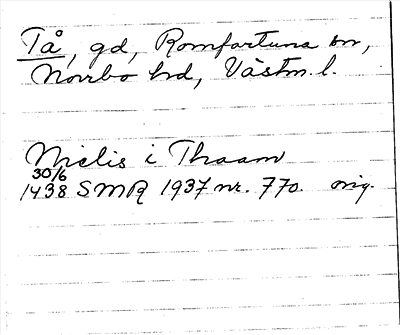 Tå, gd, Romfartuna sn,
Norrbo hd, Västm. l.
Nielis i Thraam
30/6
1438 SMR 1937 nr. 770. orig.